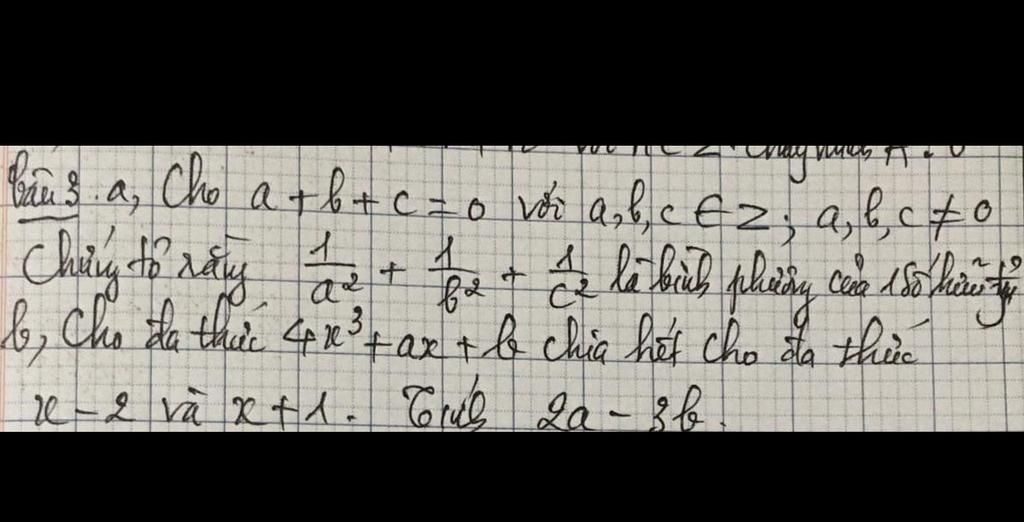 với n ∈ Z. Chứng minh A
Câu 3. a, Cho a + b + c = 0 với a, b, c ∈ Z; a, b, c ≠ 0
Chứng tỏ rằng 1/a² + 1/b² + 1/c² là bình phương của 1 số hữu tỷ
b, Cho đa thức 4x³ + ax + b chia hết cho đa thức
x - 2 và x + 1. Tính 2a - 3b.